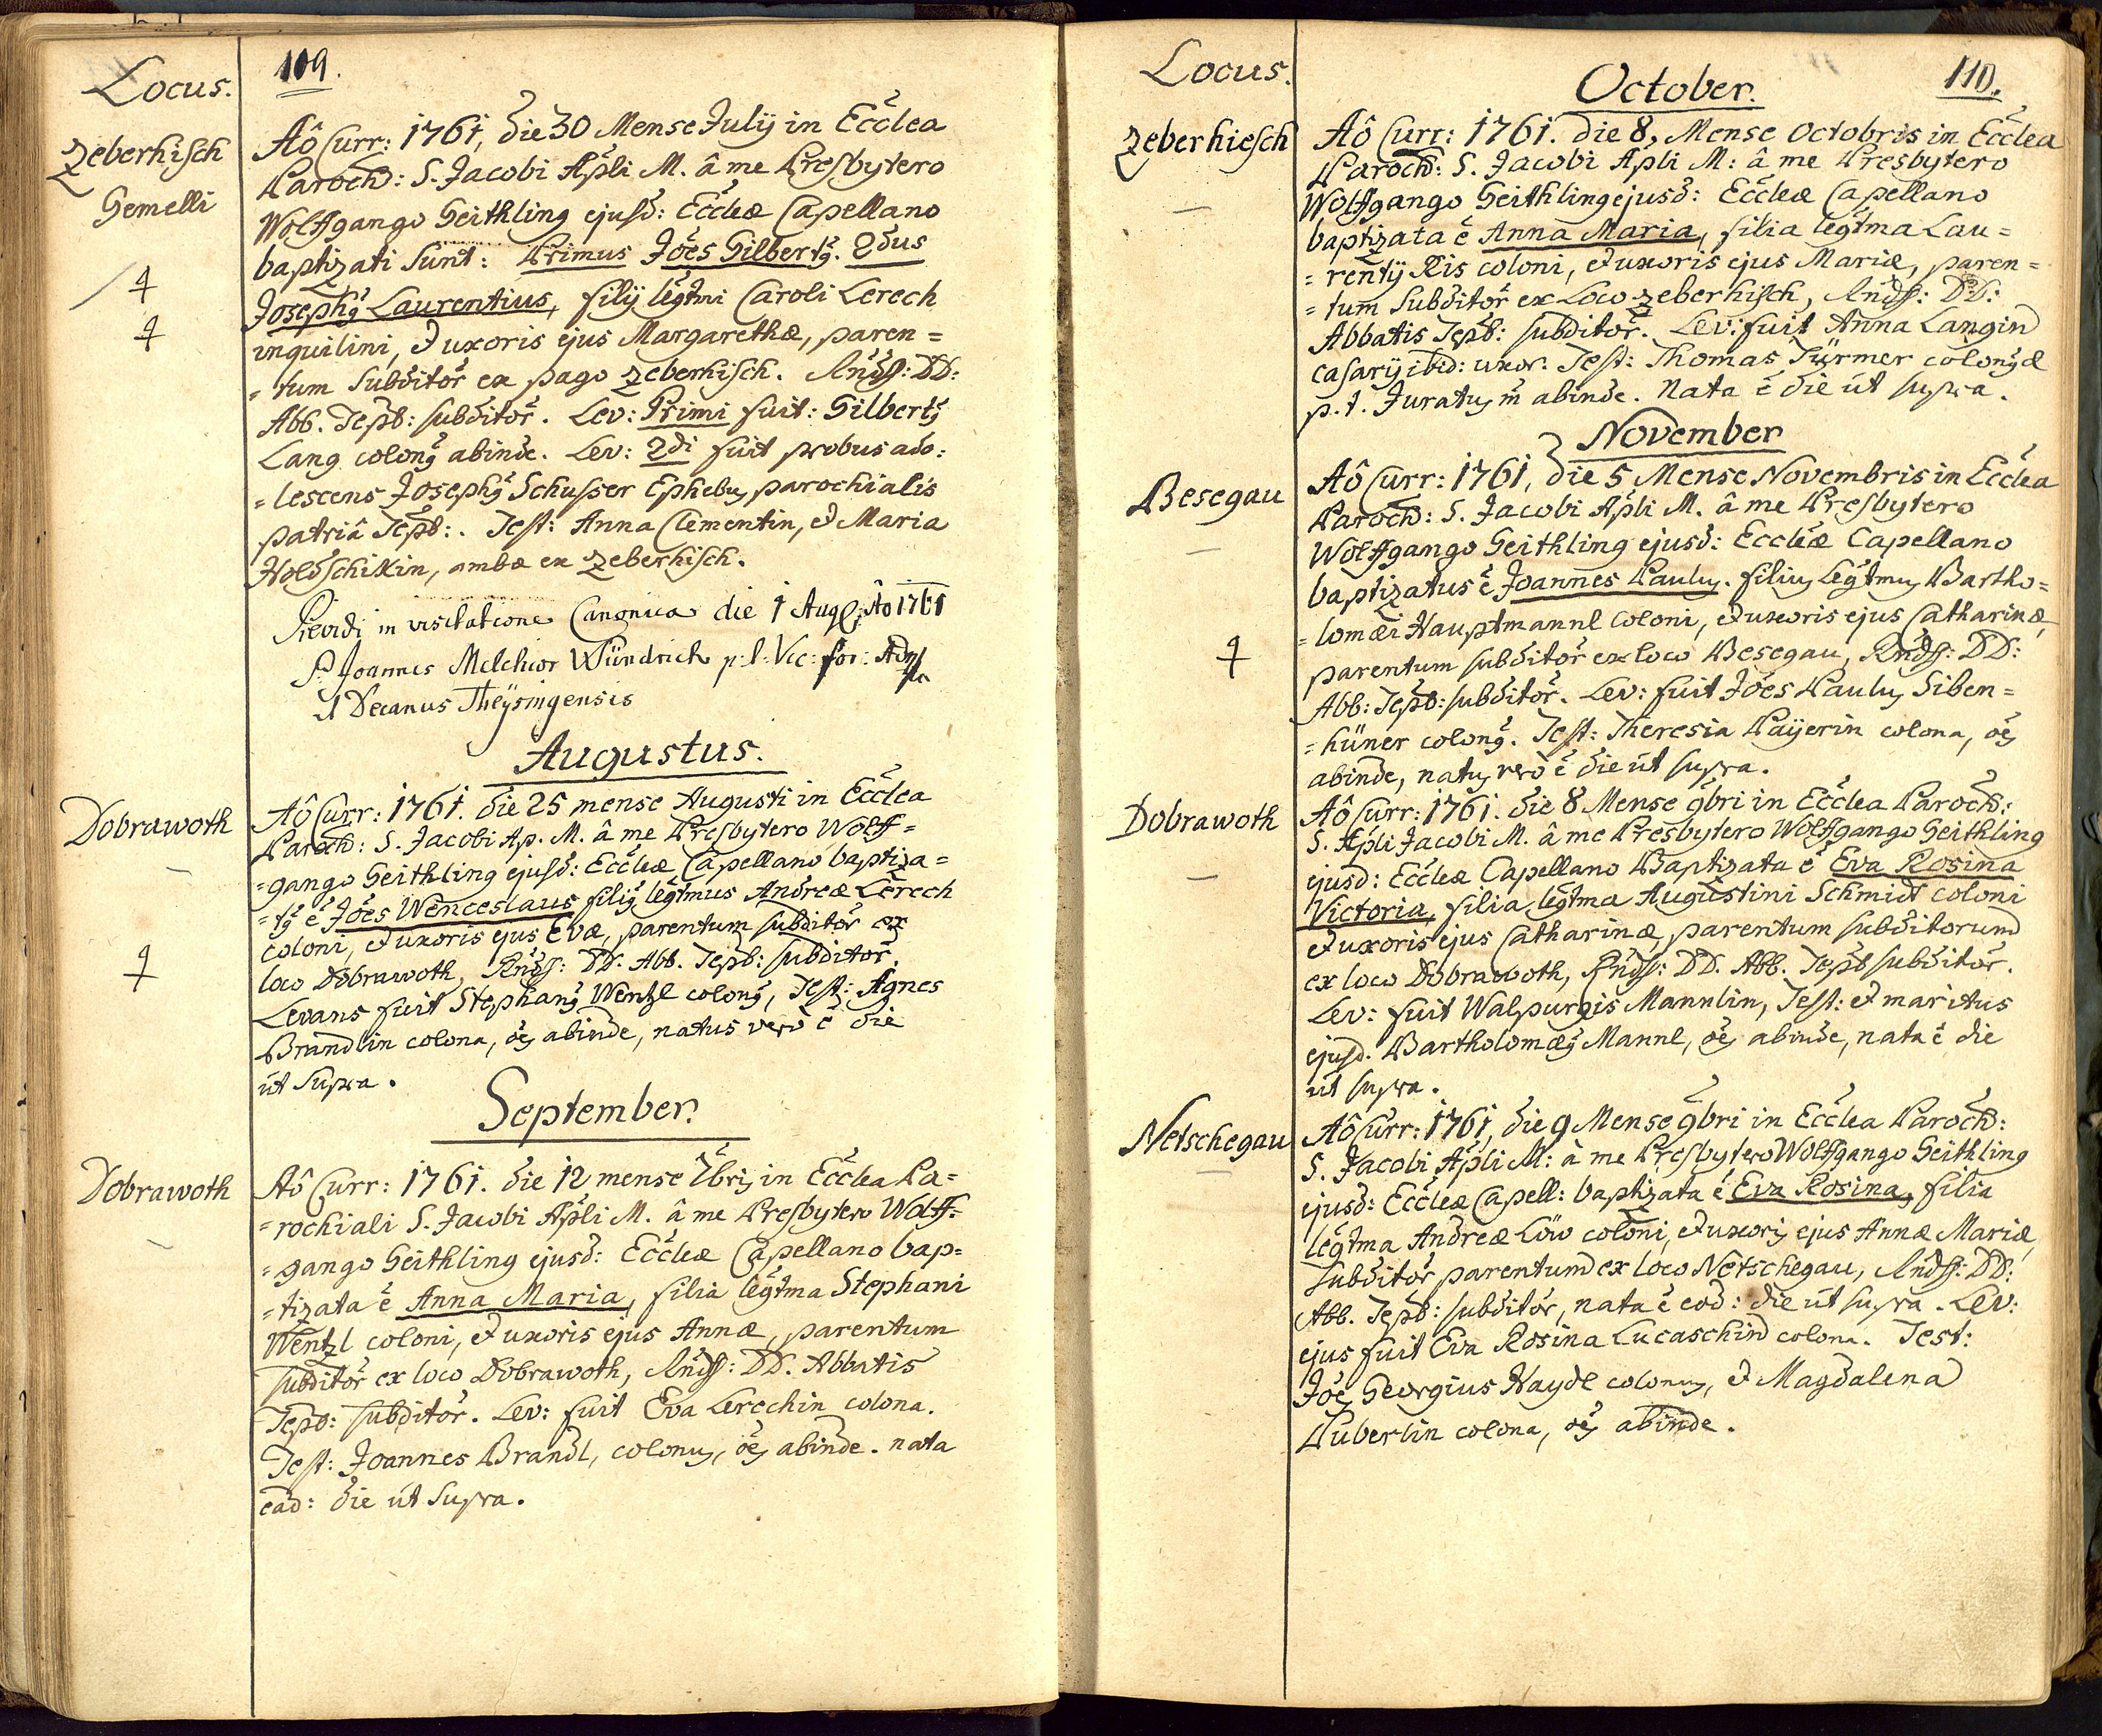 Locus.
109.
Zeberhisch
Gemelli
Aô Curr: 1761, die 30 Mense Julij in Ecclea
Paroch: S. Jacobi Apli M. â me Presbytero
Wolffgango Geithling ejusd: Eccleæ Capellano
baptizati sunt: Primus Joes Gilbertq. 2dus
Josephq Laurentius, filij legtmi Caroli Lerech
inquilini, et uxoris ejus Margarethæ, paren=
=tum subditor ex pago Zeberhisch. Rndss: DD:
Abb. Tepb: subditor. Lev: Primi fuit: Gilbertq
Lang colonq abinde. Lev: 2di fuit probus ado:
=lescens Josephq Schusser Ephebus parochialis
patriâ Tepb:. Test: Anna Clementin, et Maria
Holdschikin, ambæ ex Zeberhisch.
Pievidi in visitatione Canonica die 1 Aug. Ao 1761
P. Joannes Melchior Wündrich p: t: Vic: for:
Decanus Theysingensis
Augustus.
Dobrawoth
Aô Curr: 1761. die 25 mense Augusti in Ecclea
Paroch: S. Jacobi Ap. M. â me Presbytero Wolff=
=gango Geithling ejusd: Eccleæ Capellano baptiza=
=tq ê Joes Wenceslaus filiq legtmus Andreæ Lerech
coloni, et uxoris ejus Evæ, parentum subditor ex
loco Dobrawoth, Rndss: DD. Abb. Tepb: subditor.
Levans fuit Stephanq Wentzl colonq, Test: Agnes
Brandlin colona, oes abinde, natus vero ê die
ut supra.
September.
Dobrawoth
Aô Curr: 1761. die 12 mense 7bris in Ecclea Pa=
=rochiali S. Jacobi Apli M. â me Presbytero Wolff=
=gango Geithling ejusd: Eccleæ Capellano bap=
=tizata ê Anna Maria, filia legtma Stephani
Wentzl coloni, et uxoris ejus Annæ, parentum
subditor ex loco Dobrawoth, Rndss: DD. Abbatis
Tepb: subditor. Lev: fuit Eva Lerechin colona.
Test: Joannes Brandl, colonus, oes abinde. nata
ead: die ut supra.
Locus.
110.
October.
Zeberhiesch
Aô Curr: 1761. die 8, Mense Octobris in Ecclea
Paroch: S. Jacobi Apli M: â me Presbytero
Wolffgango Geithling ejusd: Eccleæ Capellano
baptizata ê Anna Maria, filia legtma Lau=
=rentij Ris coloni, et uxoris ejus Mariæ, paren=
=tum subditor ex Loco Zeberhisch, Rndss: DD:
Abbatis Tepb: subditor. Lev: fuit Anna Langin
casarij ibid: uxor. Test: Thomas Türmer colonq et
p. t. Juratus in abinde. Nata ê die ut supra.
November
Besegau
Aô Curr: 1761, die 5 Mense Novembris in Ecclea
Paroch: S. Jacobi Apli M. â me Presbytero
Wolffgango Geithling ejusd: Eccleæ Capellano
baptizatus ê Joannes Paulus. filius legtmus Bartho=
=lomæi Hauptmannl coloni, et uxoris ejus Catharinæ,
parentum subditor ex loco Besegau, Rndss: DD:
Abb: Tepb: subditor. Lev: fuit Joes Paulus Siben=
=hüner colonq. Test: Theresia Payerin colona, oes
abinde, natus vero ê die ut supra.
Dobrawoth
Aô Curr: 1761. die 8 Mense 9bri in Ecclea Paroch:
S. Apli Jacobi M. â me Presbytero Wolffgango Geithling
ejusd: Eccleæ Capellano Baptizata ê Eva Rosina
Victoria, filia legtma Augustini Schmidt coloni
et uxoris ejus Catharinæ, parentum subditorum
ex loco Dobrawoth, Rndss: DD. Abb. Tepb subditor.
Lev: fuit Walpurgis Mannlin, Test: et maritus
ejusd. Bartholomæq Mannl, oes abinde, nata ê die
ut supra.
Netschegau
Aô Curr: 1761, die 9 Mense 9bri in Ecclea Paroch:
S. Jacobi Apli M: à me Presbytero Wolffgango Geithling
ejusd: Eccleæ Capell: baptizata ê Eva Rosina, filia
legtma Andreæ Löw coloni, et uxoris ejus Annæ Mariæ,
subditor parentum ex loco Netschegau, Rndss: DD:
Abb. Tepb: subditor, nata ê eod: die ut supra. Lev:
ejus fuit Eva Rosina Lucaschin colona. Test:
Joes Georgius Haydl colonus, et Magdalena
Puberlin colona, oes abinde.